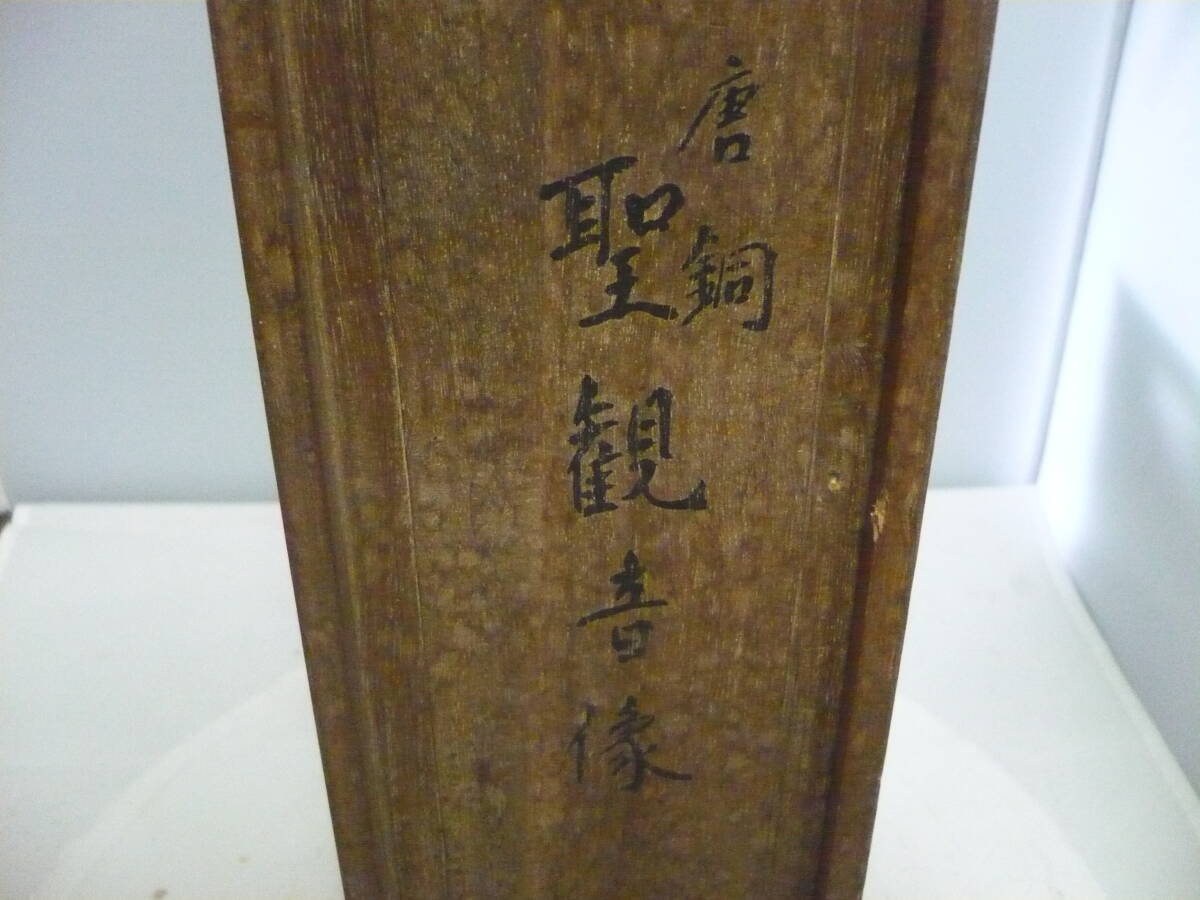 唐銅
聖観音像